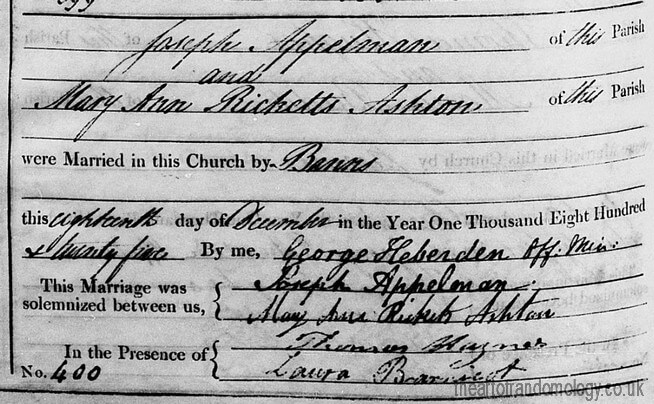 Joseph Appelman of this Parish
and
Mary Ann Ricketts Ashton of this Parish
were Married in this Church by Banns
this eighteenth day of December in the Year One Thousand Eight Hundred
& twenty five By me, George Heberden Off: Min:
This Marriage was solemnized between us,
Joseph Appelman
Mary Ann Ricketts Ashton
In the Presence of
Thomas
Laura
No. 400
theartofrandomology.co.uk